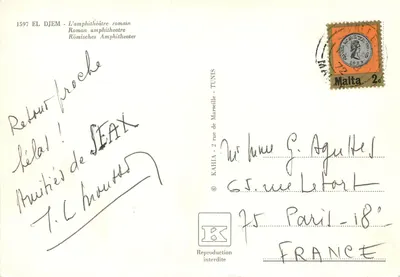 1597 EL DJEM - L'amphithéâtre romain
Roman amphitheatre
Römisches Amphitheater
Retour proche
hélas !
Amitiés de SFAX
Malta 2c
© KAHIA - 2 rue de Marseille - TUNIS
Mr Mme G. Aguttes
65. rue Letort
75 Paris - 18e
FRANCE
K
Reproduction
interdite